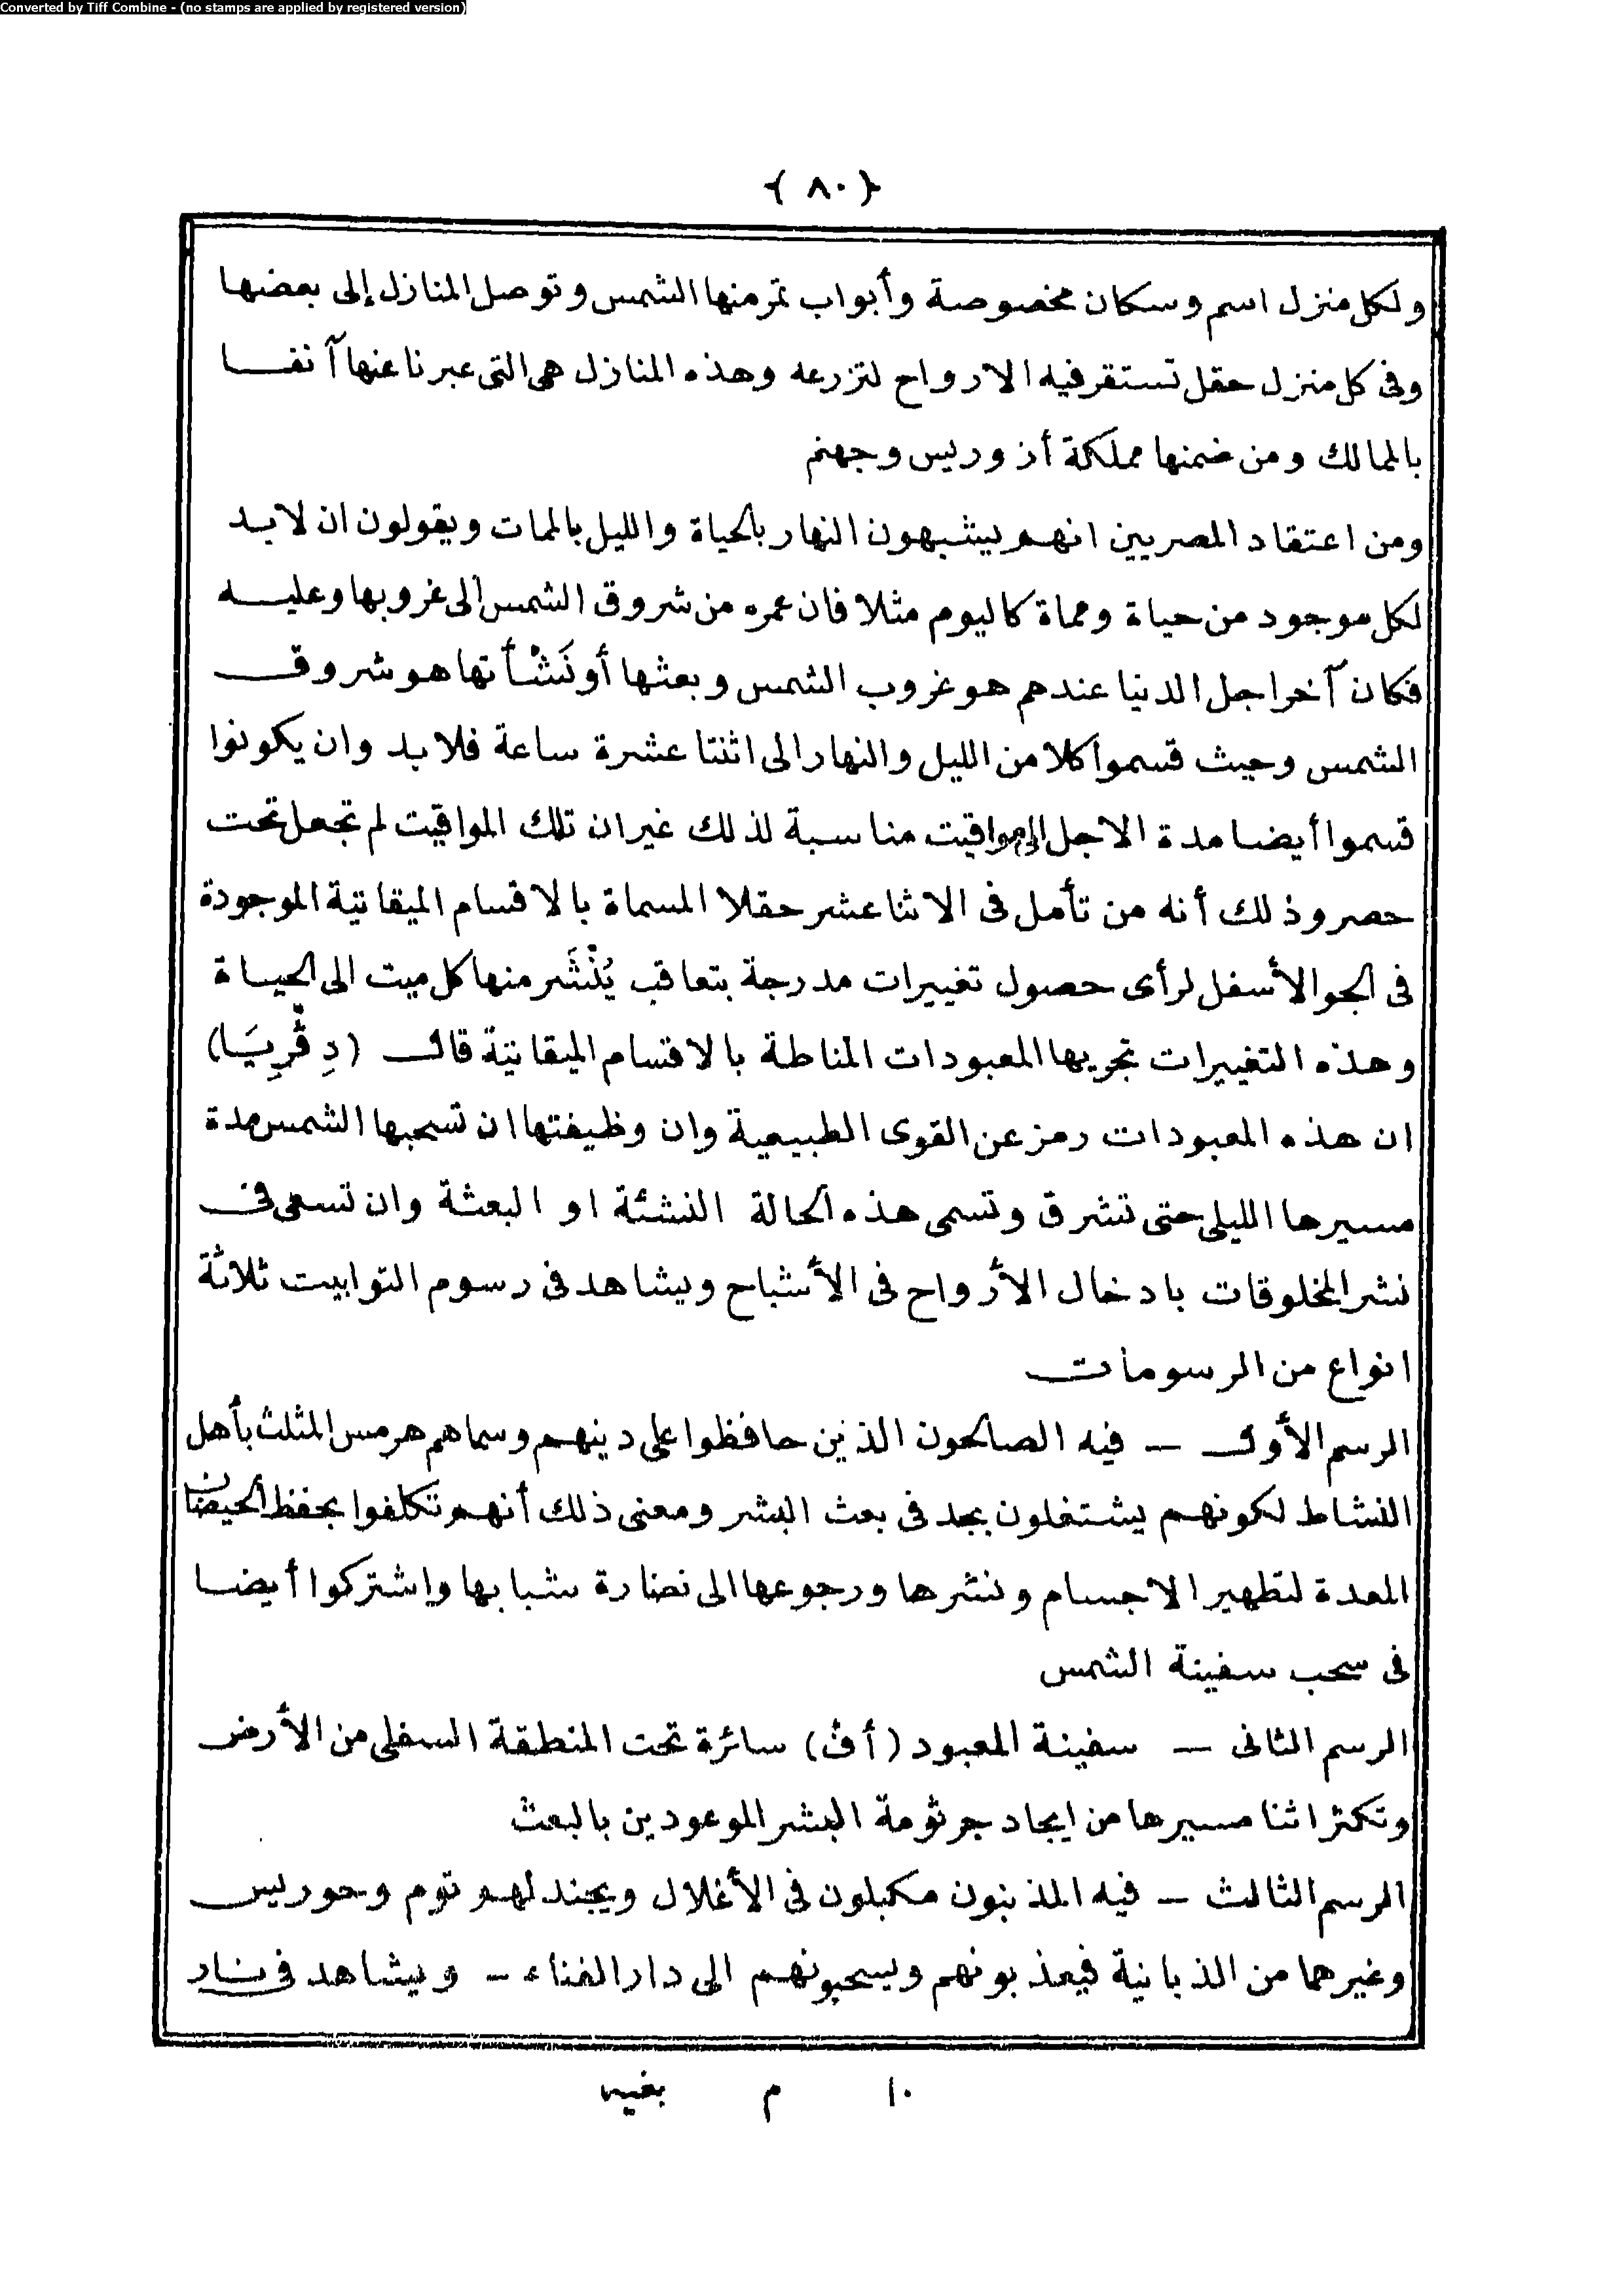 Converted by Tiff Combine - (no stamps are applied by registered version)
{ ٨٠ }
ولكل منزل اسم وسكان مخصوصة وأبواب تمر منها الشمس وتوصل المنازل إلى بعضها
وفى كل منزل حقل تستقر فيه الارواح لتزرعه وهذه المنازل هى التى عبرنا عنها آنفا
بالممالك ومن ضمنها مملكة أزوريس وجهنم
ومن اعتقاد المصريين انهم يشبهون النهار بالحياة والليل بالممات ويقولون ان لابد
لكل موجود من حياة ومماة كاليوم مثلا فان عمره من شروق الشمس الى غروبها وعليه
فكان آخر اجل الدنيا عندهم هو غروب الشمس وبعثها أو نَشْأتها هو شروق
الشمس وحيث قسموا كلا من الليل والنهار الى اثنتا عشرة ساعة فلا بد وان يكونوا
قسموا أيضا مدة الاجل الى مواقيت مناسبة لذلك غير ان تلك المواقيت لم تجعل تحت
حصر وذلك أنه من تأمل فى الاثنا عشر حقلا المسماة بالاقسام الميقاتية الموجودة
فى الجو الأسفل لرأى حصول تغييرات مدرجة بتعاقب يُنْشَر منها كل ميت الى الحياة
وهذه التغييرات تجريها المعبودات المناطة بالاقسام الميقاتية قال (دِ ڤْرِيَا)
ان هذه المعبودات رمز عن القوى الطبيعية وان وظيفتها ان تسحبها الشمس مدة
مسيرها الليلى حتى تشرق وتسمى هذه الحالة النشئة او البعثة وان تسعى فى
نشر المخلوقات بادخال الأرواح فى الأشباح ويشاهد فى رسوم التوابيت ثلاثة
انواع من الرسومات
الرسم الأول — فيه الصالحون الذين حافظوا على دينهم وسماهم هرمس المثلث بأهل
النشاط لكونهم يشتغلون بجد فى بعث البشر ومعنى ذلك أنهم تكلفوا بحفظ الحيضان
المعدة لتطهير الاجسام ونشرها ورجوعها الى نضارة شبابها واشتركوا أيضا
فى سحب سفينة الشمس
الرسم الثانى — سفينة المعبود (أف) سائرة تحت المنطقة السفلى من الأرض
وتكثر اثنا مسيرها من ايجاد جرثومة البشر الموعودين بالبعث
الرسم الثالث — فيه المذنبون مكبلون فى الأغلال ويجند لهم توم وحوريس
وغيرهما من الذبانية فيعذبونهم ويسحبونهم الى دار الفناء — ويشاهد فى نار
١٠ م بغيه